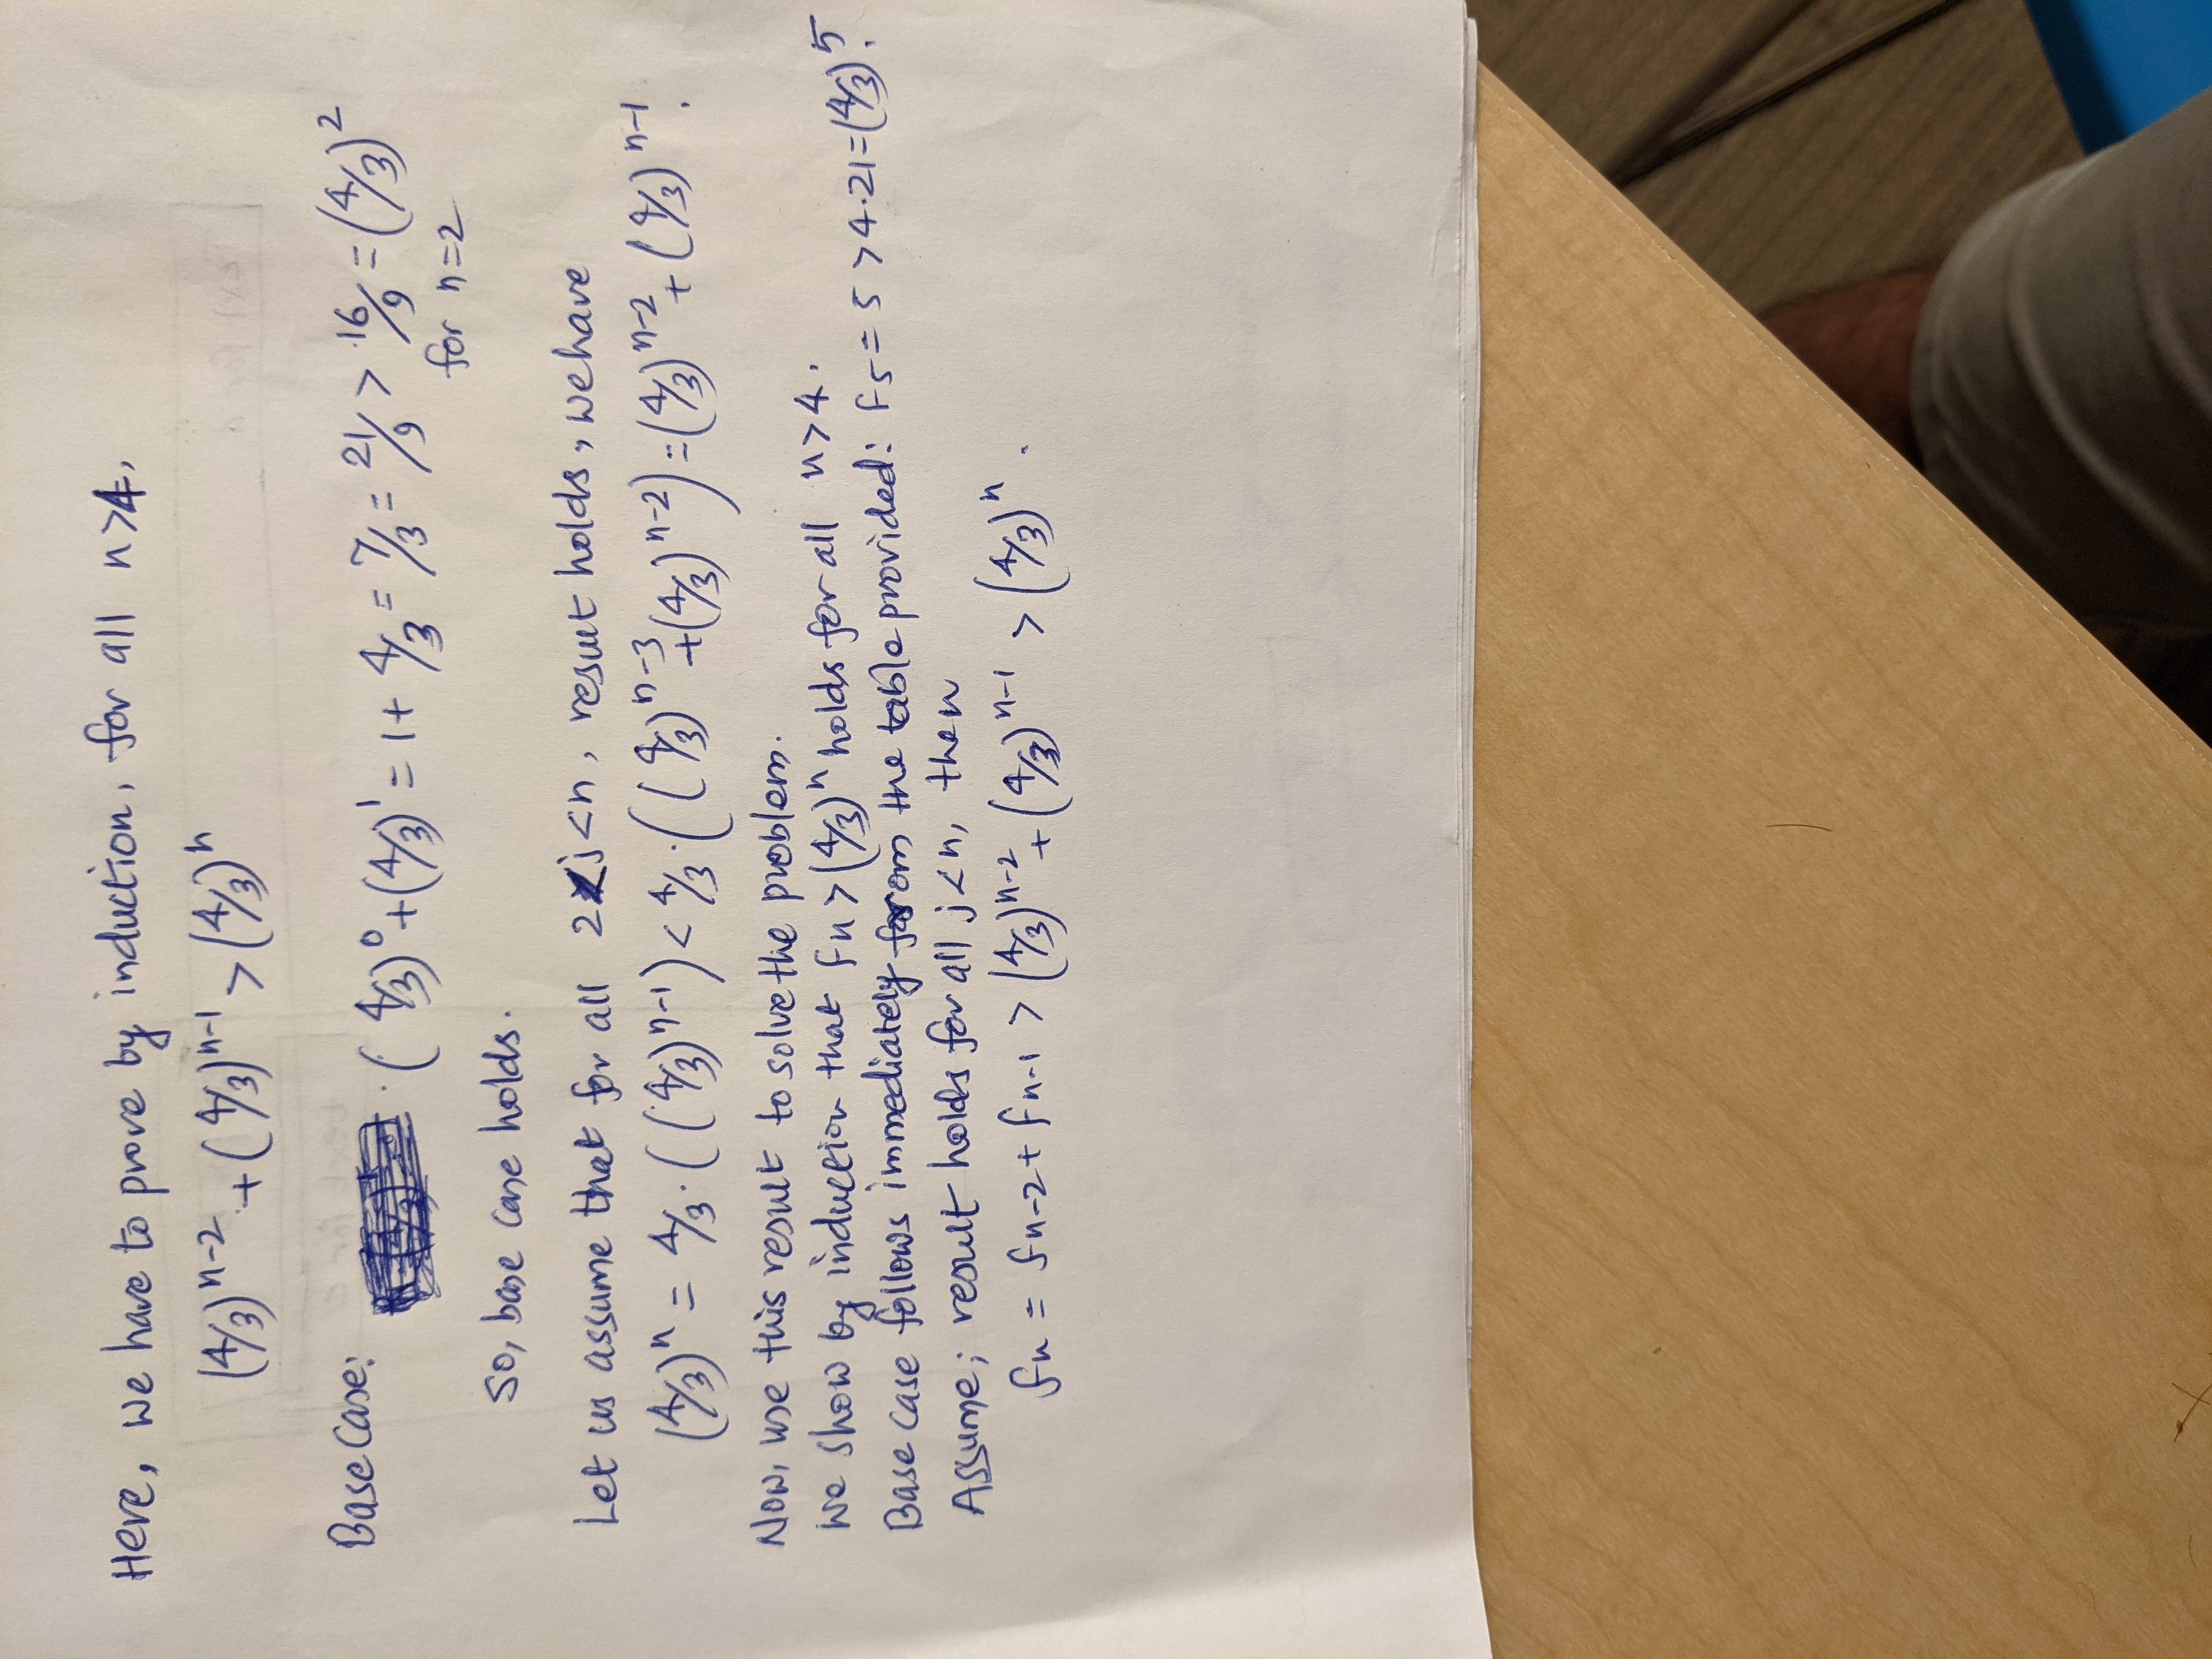 Here, we have to prove by induction, for all n>4,
(4/3)^n-2 + (4/3)^n-1 > (4/3)^n
Base Case: (4/3)^0 + (4/3)^1 = 1 + 4/3 = 7/3 = 21/9 > 16/9 = (4/3)^2
for n=2
So, base case holds.
Let us assume that for all 2<j<n, result holds, we have
(4/3)^n = 4/3 · ((4/3)^n-1) < 4/3 · ((4/3)^n-3 + (4/3)^n-2) = (4/3)^n-2 + (4/3)^n-1.
Now, use this result to solve the problem.
We show by induction that fn > (4/3)^n holds for all n>4.
Base case follows immediately from the table provided: F5 = 5 > 4.21 = (4/3)^5.
Assume; result holds for all j<n, then
fn = fn-2 + fn-1 > (4/3)^n-2 + (4/3)^n-1 > (4/3)^n.